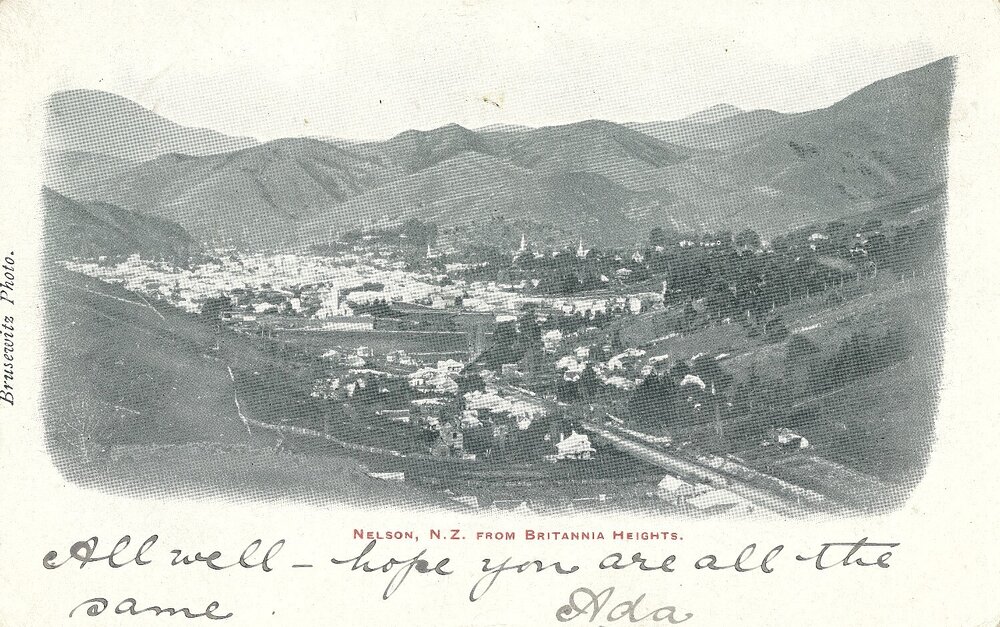 Brusewitz Photo.
NELSON, N.Z. FROM BRITANNIA HEIGHTS.
All well – hope you are all the
same.
Ada